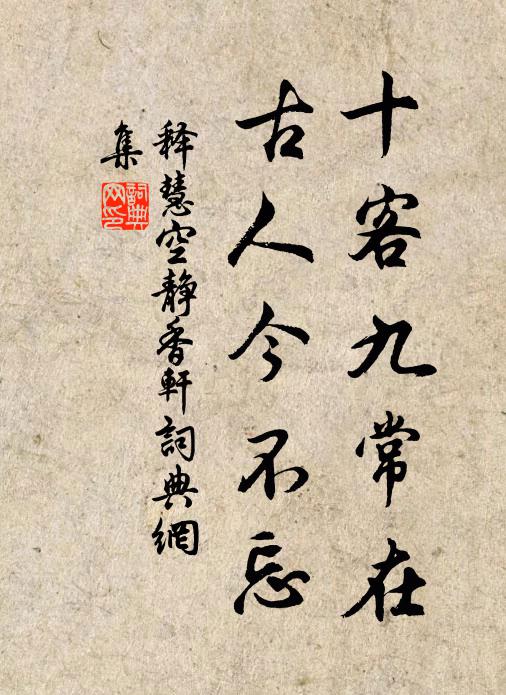 十客九常在
古人今不忘
释慧空静香軒詞典網
集
詞典網印